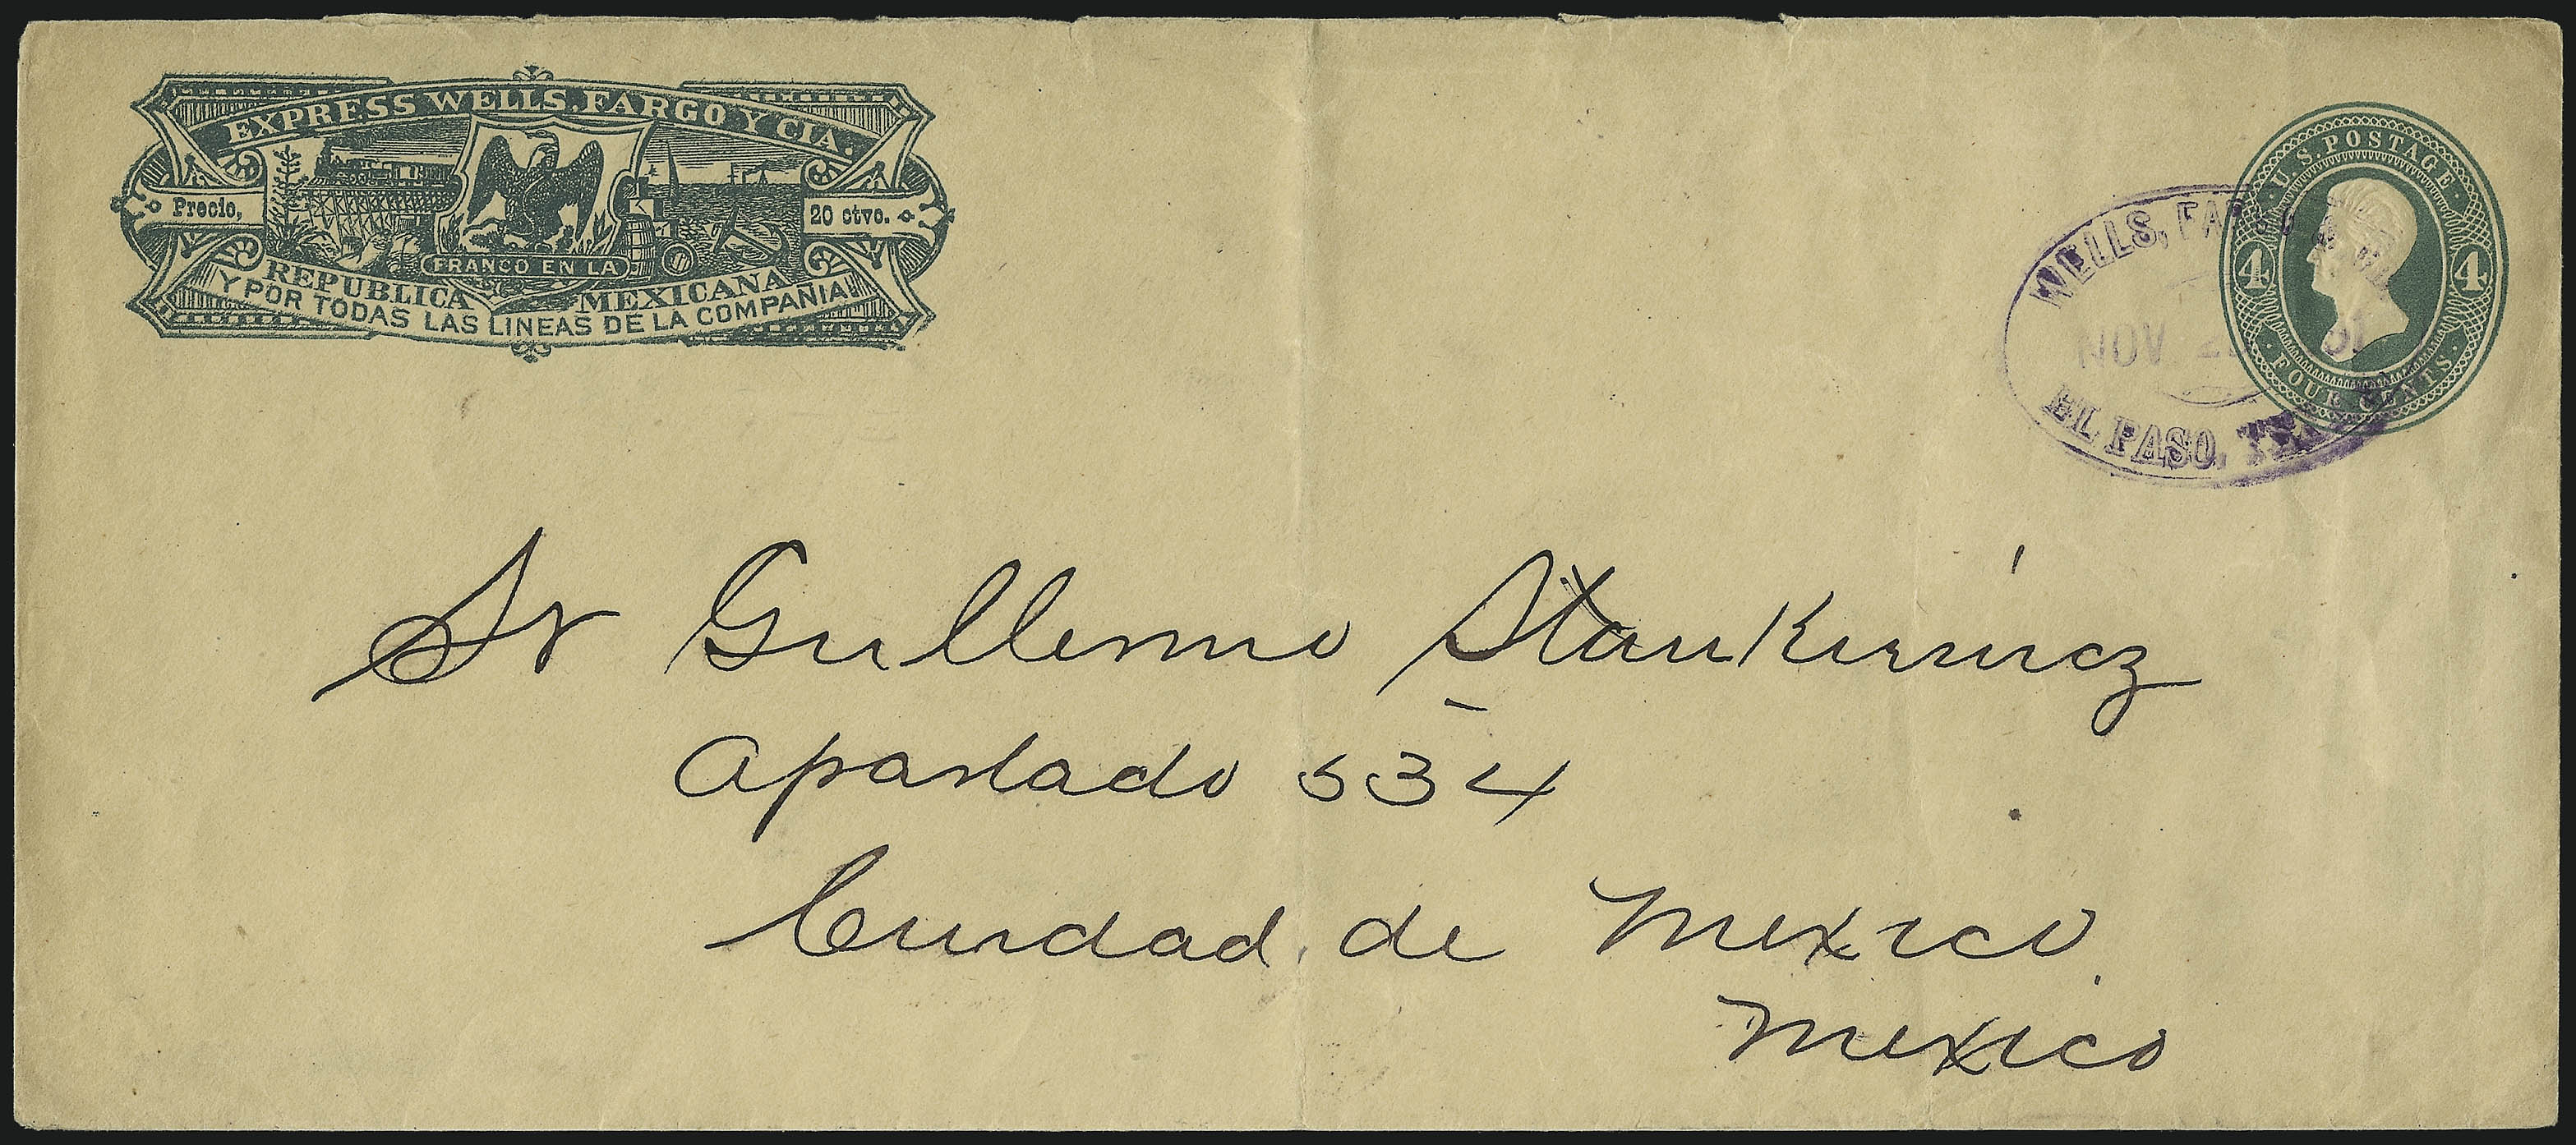 EXPRESS WELLS, FARGO Y CIA.
Precio,
20 ctvo.
FRANCO EN LA
REPUBLICA MEXICANA
Y POR TODAS LAS LINEAS DE LA COMPAÑIA
U.S. POSTAGE
4 4
FOUR CENTS
WELLS, FARGO &
NOV
EL PASO, TEX
Sr Guillermo
Apartado 534
Ciudad de Mexico
Mexico